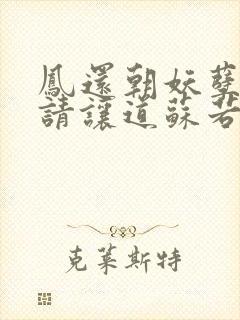 鳳還朝妖孽
請讓道蘇若
克萊斯特